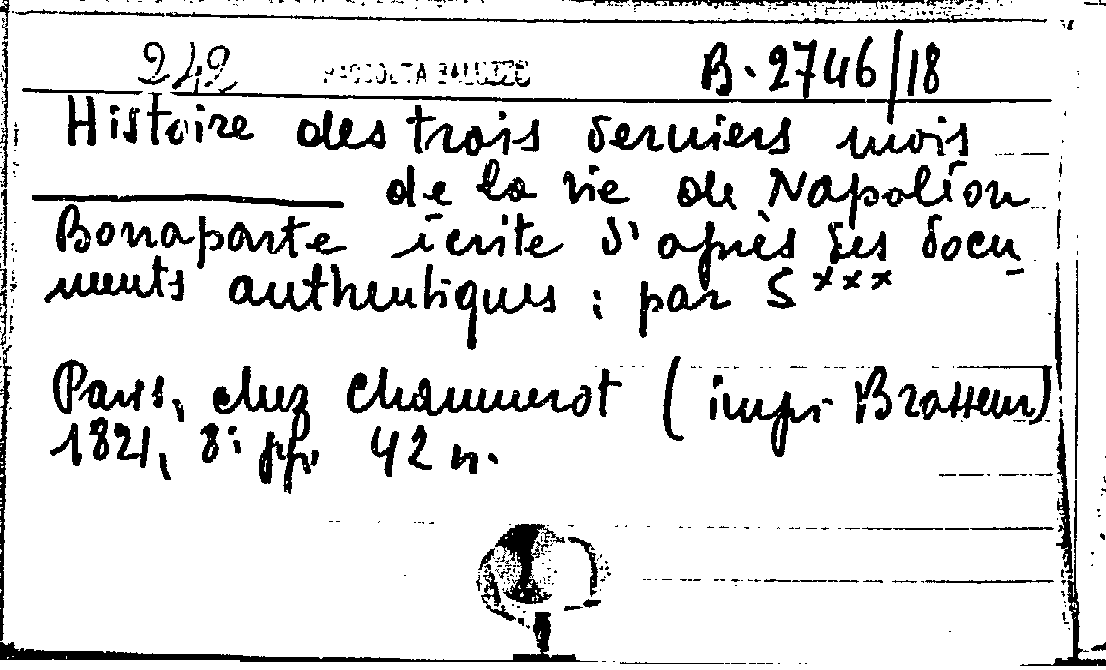 242 RACCOLTA BALUZZO B. 2746/18
Histoire des trois derniers mois
de la vie de Napoléon
Bonaparte écrite d'après des docu-
ments authentiques; par S***
Paris, chez Chaumerot (impr. Brasseur)
1821, 8° pp. 42 n.